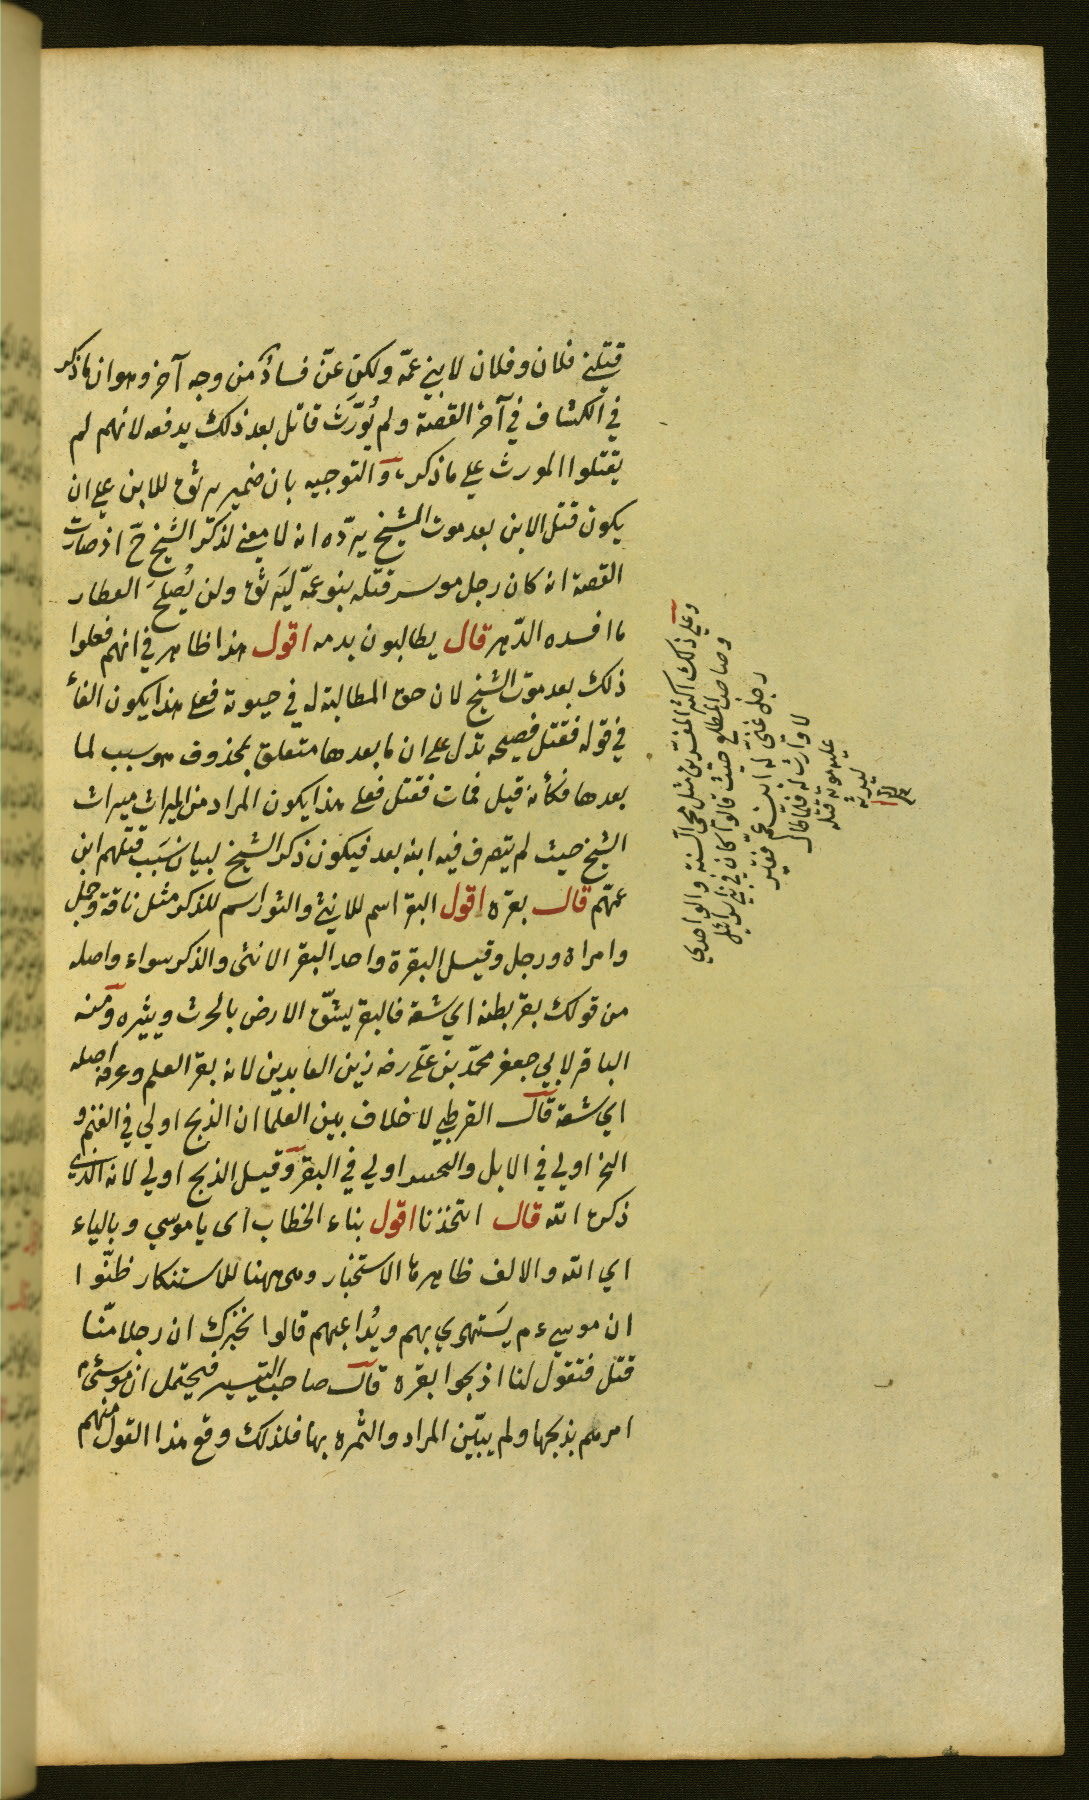 قتلني فلان وفلان لابني عمّه ولكن عنّ فساده من وجه آخر وهو ان ما ذكر
في الكشاف في آخر القصة ولم يُورَّث قاتل بعد ذلك يدفعه لانهم لم
يقتلوا المورث على ما ذكره والتوجيه بان ضمير يرثوه للابن على ان
يكون قتل الابن بعد موت الشيخ يردّه انه لا معنى لذكر الشيخ ح اذ صارت
القصة انه كان رجل موسر قتله بنو عمّه ليَرثوه ولن يُصلح العطار
ما افسده الدّهر قال يطالبون بدمه اقول هذا ظاهر في انهم فعلوا
ذلك بعد موت الشيخ لان حق المطالبة له في حيوته فعلى هذا يكون الفأ
في قوله فقتل فصيحه تدل على ان ما بعدها متعلق بمحذوف هو سبب لما
بعدها فكأنه قيل فمات فقتل فعلى هذا يكون المراد من الميراث ميراث
الشيخ حيث لم يتصرف فيه ابنه بعد فيكون ذكر الشيخ لبيان سَبَب قتلهم ابن
عمّهم قال بقرة اقول البقرة اسم للانثى والثور اسم للذكر مثل ناقة وجمل
وامراة ورجل وقيل البقرة واحد البقر الانثى والذكر سواء واصله
من قولك بقر بطنه اي شقه فالبقر يشقّ الارض بالحرث ويثيره ومنه
الباقر لابي جعفر محمّد بن علي رضه زين العابدين لانه بقر العلم وعرف اصله
اي شقه قال القرطبي لا خلاف بين العلما ان الذبح اولى في الغنم و
النحر اولى في الابل والتخيير اولى في البقر وقيل الذبح اولى لانه الذي
ذكره الله قال اتتخذنا اقول بتاء الخطاب اى يا موسى وبالياء
اي الله والالف ظاهرها الاستخبار وهى ههنا للاستنكار ظنّوا
ان موسى عم يَستهزي بهم ويُداعبهم قالوا نخبرك ان رجلا منّا
قتل فتقول لنا اذبحوا بقرة قال صاحب التيسير فيحتمل ان موسى عم
امرهم بذبحها ولم يبيّن المراد والثمرة بها فلذلك وقع هذا القول منهم
وعلى ذلك اكثر المفسّرين مثل محى السنة والواحدي
وصاحب المطلع حيث قالوا كان في بني اسرائيل
رجل غنيّ له ابن عمّ فقير
لا وارث له فلما طال
عليه موته قتله
ليرثه